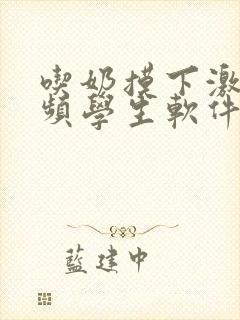 喫奶摸下激
頻學生軟件
藍建中